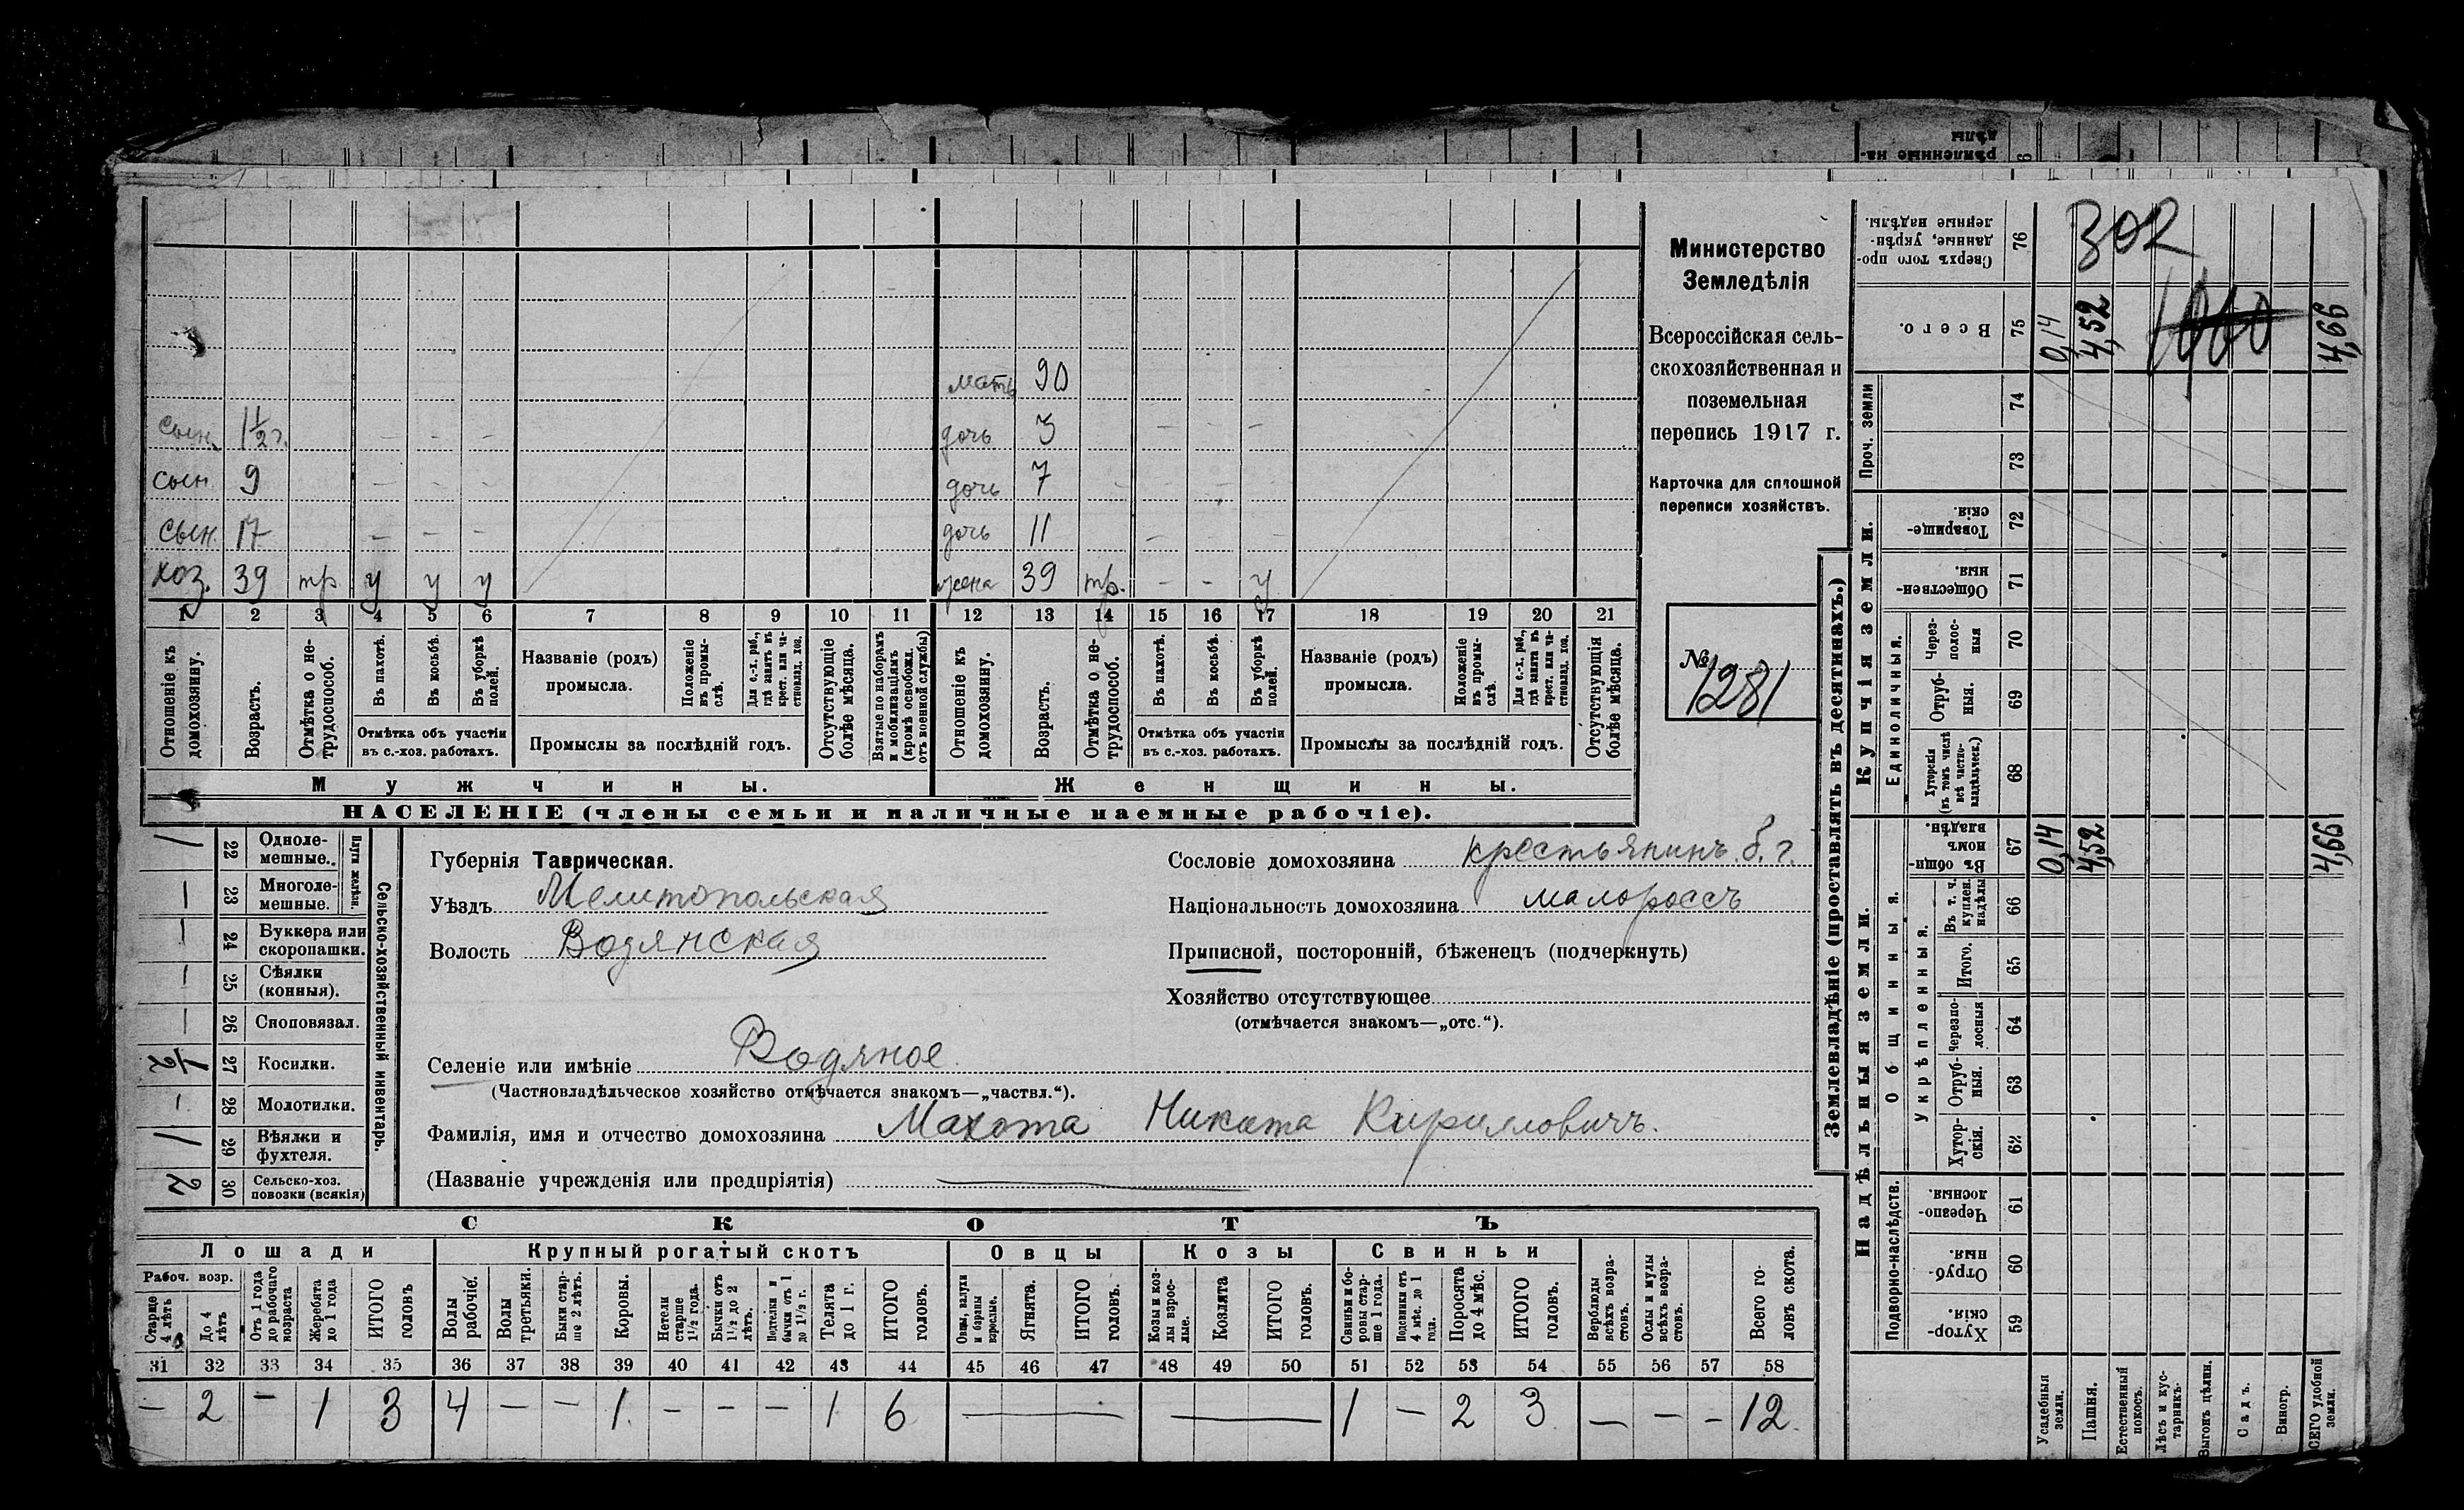 302
1000
Министерство
Земледѣлія
Всероссійская сель-
скохозяйственная и
поземельная
перепись 1917 г.
Карточка для сплошной
переписи хозяйствъ.
№ 1281
мать 90
сын 1½ г. – – – дочь 3 – – –
сын 9 – – – дочь 7 – – –
сын 17 – – – дочь 11 – –
хоз. 39 тр у у у жена 39 тр. – – у
1 2 3 4 5 6 7 8 9 10 11 12 13 14 15 16 17 18 19 20 21
Отношеніе къ домохозяину.
Возрастъ.
Отмѣтка о не-трудоспособ.
Въ пахотѣ.
Въ косьбѣ.
Въ уборкѣ полей.
Отмѣтка объ участіи
въ с.-хоз. работахъ.
Названіе (родъ)
промысла.
Положеніе въ промы-слѣ.
Для с.-х. раб., гдѣ занятъ въ крест. или ча-стновлад. хоз.
Промыслы за послѣдній годъ.
Отсутствующіе болѣе мѣсяца.
Взятые по наборамъ и мобилизаціямъ (кромѣ освобожд. отъ военной службы)
Отношеніе къ домохозяину.
Возрастъ.
Отмѣтка о не-трудоспособ.
Въ пахотѣ.
Въ косьбѣ.
Въ уборкѣ полей.
Отмѣтка объ участіи
въ с.-хоз. работахъ.
Названіе (родъ)
промысла.
Положеніе въ промы-слѣ.
Для с.-х. раб., гдѣ занята въ крест. или ча-стновлад. хоз.
Промыслы за послѣдній годъ.
Отсутствующія болѣе мѣсяца.
Мужчины.
Женщины.
НАСЕЛЕНІЕ (члены семьи и наличные наемные рабочіе).
Сельско-хозяйственный инвентарь.
Плуги желѣзн.
1 22 Одноле-мешные.
– 23 Многоле-мешные.
– 24 Буккера или скоропашки.
– 25 Сѣялки (конныя).
– 26 Сноповязал.
½ 27 Косилки.
– 28 Молотилки.
1 29 Вѣялки и фухтеля.
2 30 Сельско-хоз. повозки (всякія)
Губернія Таврическая.
Уѣздъ Мелитопольская
Волость Водянская
Сословіе домохозяина крестьянинъ б. г.
Національность домохозяина малороссъ
Приписной, посторонній, бѣженецъ (подчеркнуть)
Хозяйство отсутствующее
(отмѣчается знакомъ—„отс.“).
Селеніе или имѣніе Водяное
(Частновладѣльческое хозяйство отмѣчается знакомъ—„частвл.“).
Фамилія, имя и отчество домохозяина Махота Никита Кириловичъ.
(Названіе учрежденія или предпріятія)
СКОТЪ
Лошади
Крупный рогатый скотъ
Овцы
Козы
Свиньи
Рабоч. возр.
Старше 4 лѣтъ
До 4 лѣтъ
Отъ 1 года до рабочаго возраста
Жеребята до 1 года
ИТОГО головъ
Волы рабочіе.
Волы третьяки.
Быки стар-ше 2 лѣтъ.
Коровы.
Нетели старше 1½ года.
Бычки отъ 1½ до 2 лѣтъ.
Подтелки и бычки отъ 1 до 1½ г.
Телята до 1 г.
ИТОГО головъ.
Овцы, валухи и бараны взрослые.
Ягнята.
ИТОГО головъ.
Козы и коз-лы взрос-лые.
Козлята
ИТОГО головъ.
Свиньи и бо-ровы стар-ше 1 года.
Подсвинки отъ 4 мѣс. до 1 года.
Поросята до 4 мѣс.
ИТОГО головъ.
Верблюды всѣхъ возра-стовъ.
Ослы и мулы всѣхъ возра-стовъ.
Всего го-ловъ скота.
31 32 33 34 35 36 37 38 39 40 41 42 43 44 45 46 47 48 49 50 51 52 53 54 55 56 57 58
– 2 – 1 3 4 – – 1 – – – 1 6 — — 1 – 2 3 – – – 12
Землевладѣніе (проставлять въ десятинахъ.)
Купчія земли.
Надѣльныя земли.
76 Сверхъ того про-данные, укрѣп-ленные надѣлы.
75 Всего. 0,14 4,52 4,66
Проч. земли
74
73
72 Товарище-скія.
71 Обществен-ныя.
Единоличныя.
70 Через-полос-ныя
69 Отруб-ныя.
68 Хуторскія (въ томъ числѣ всѣ частно-владѣльческ.)
67 Въ общин-номъ владѣн. 0,14 4,52 4,66
Общинныя.
Укрѣпленныя.
66 Въ т. ч. куплен. надѣлы
65 Итого.
64 Черезпо-лосныя
63 Отруб-ныя.
62 Хутор-скія.
Подворно-наслѣдств.
61 Черезпо-лосныя.
60 Отруб-ныя.
59 Хутор-скія.
Усадебныя земли.
Пашня.
Естественный покосъ.
Лѣсъ и кус-тарникъ.
Выгонъ цѣлин.
Садъ.
Виногр.
ВСЕГО удобной земли.